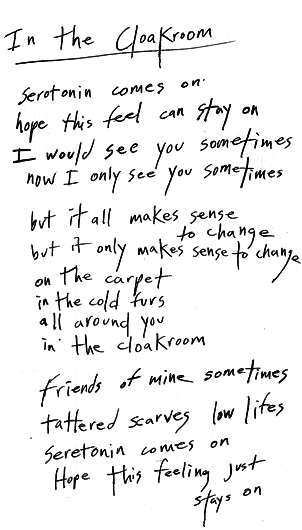 In the Cloakroom
serotonin comes on
hope this feel can stay on
I would see you sometimes
now I only see you sometimes
but it all makes sense
to change
but it only makes sense to change
on the carpet
in the cold furs
all around you
in the cloakroom
friends of mine sometimes
tattered scarves low lifes
seretonin comes on
Hope this feeling just
stays on